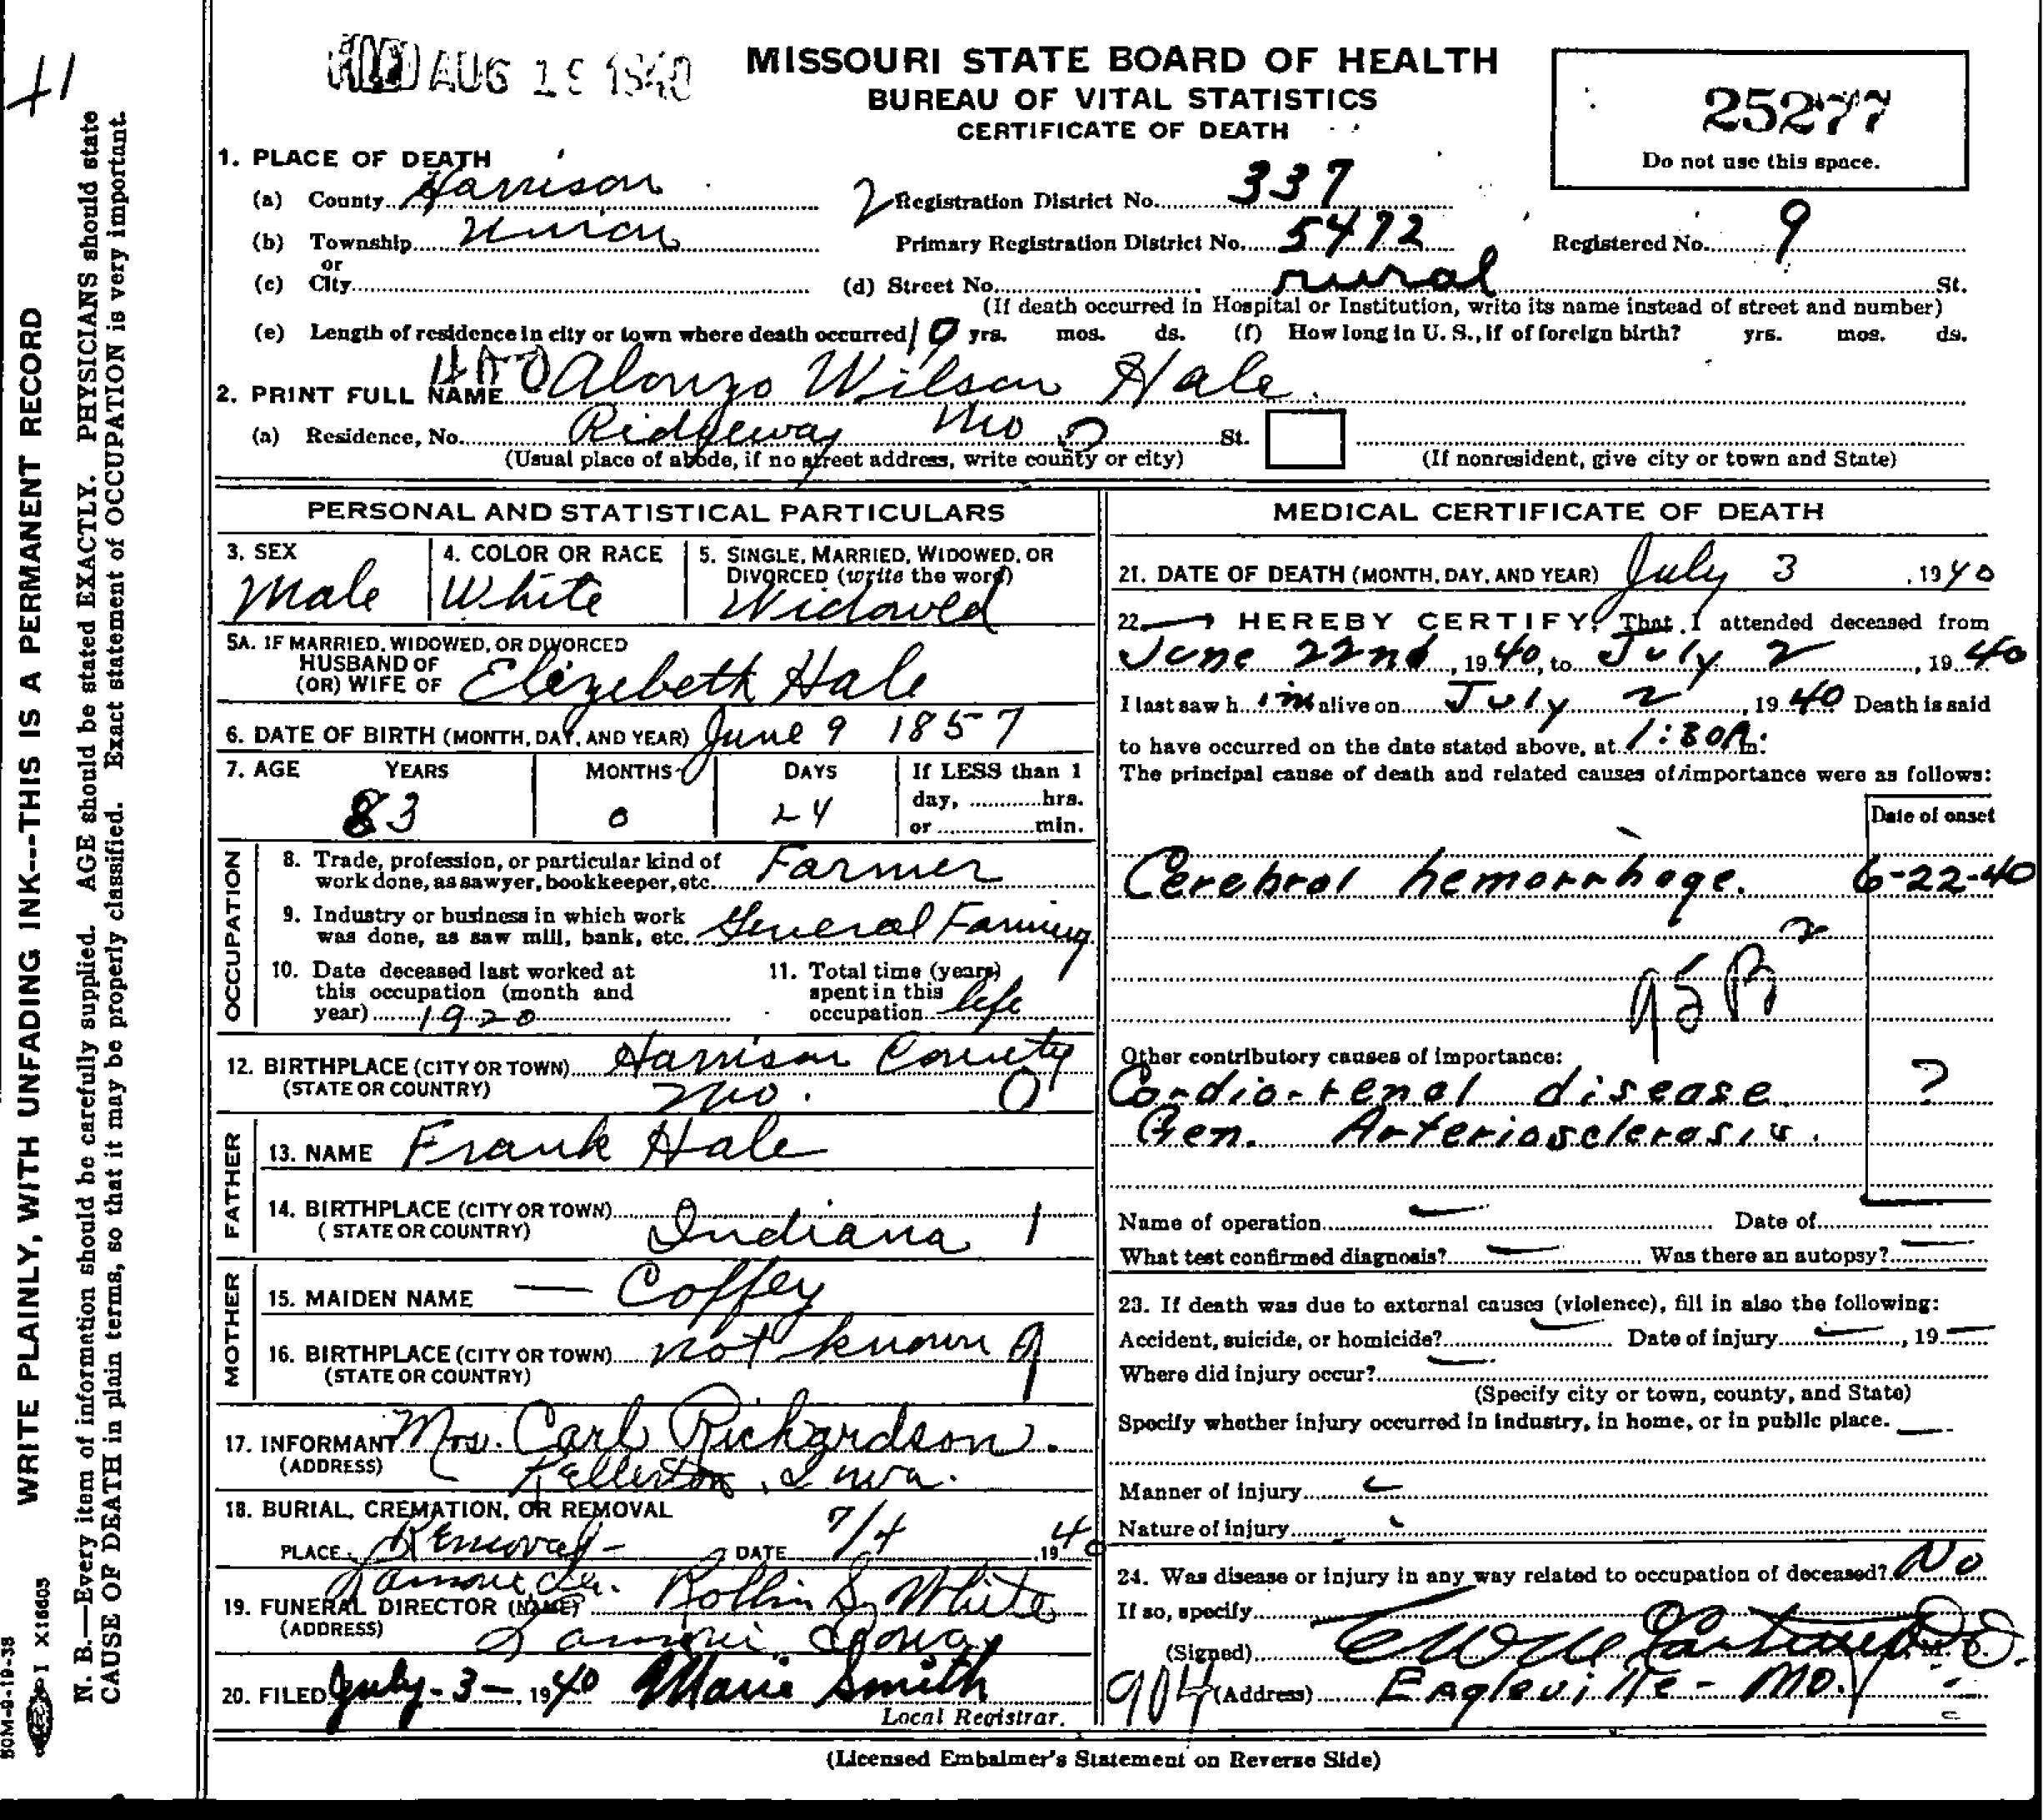 FILED AUG 15 1940
MISSOURI STATE BOARD OF HEALTH
BUREAU OF VITAL STATISTICS
CERTIFICATE OF DEATH
25277
Do not use this space.
1. PLACE OF DEATH
(a) County Harrison 2 Registration District No. 337
(b) Township Union Primary Registration District No. 5472 Registered No. 9
or
(c) City (d) Street No. rural St.
(If death occurred in Hospital or Institution, write its name instead of street and number)
(e) Length of residence in city or town where death occurred 10 yrs. mos. ds. (f) How long in U. S., if of foreign birth? yrs. mos. ds.
2. PRINT FULL NAME Alonzo Wilson Hale.
(a) Residence, No. Ridgeway Mo St.
(Usual place of abode, if no street address, write county or city) (If nonresident, give city or town and State)
PERSONAL AND STATISTICAL PARTICULARS
3. SEX 4. COLOR OR RACE 5. SINGLE, MARRIED, WIDOWED, OR
DIVORCED (write the word)
Male White Widowed
5A. IF MARRIED, WIDOWED, OR DIVORCED
HUSBAND OF
(OR) WIFE OF Elizebeth Hale
6. DATE OF BIRTH (MONTH, DAY, AND YEAR) June 9 1857
7. AGE YEARS MONTHS DAYS If LESS than 1
day, hrs.
83 0 24 or min.
OCCUPATION
8. Trade, profession, or particular kind of
work done, as sawyer, bookkeeper, etc. Farmer
9. Industry or business in which work
was done, as saw mill, bank, etc. General Farming
10. Date deceased last worked at
this occupation (month and
year) 1920
11. Total time (years)
spent in this
occupation life
12. BIRTHPLACE (CITY OR TOWN) Harrison County
(STATE OR COUNTRY) Mo. 0
FATHER
13. NAME Frank Hale
14. BIRTHPLACE (CITY OR TOWN)
(STATE OR COUNTRY) Indiana 1
MOTHER
15. MAIDEN NAME — Coffey
16. BIRTHPLACE (CITY OR TOWN) not known 9
(STATE OR COUNTRY)
17. INFORMANT Mrs. Carl Richardson.
(ADDRESS) Kellerton, Iowa.
18. BURIAL, CREMATION, OR REMOVAL
PLACE Removal - DATE 7/4 1940
Lamoni, Ia.
19. FUNERAL DIRECTOR (NAME) Rollin S. White
(ADDRESS) Lamoni Iowa
20. FILED July - 3 - 1940 Marie Smith
Local Registrar.
MEDICAL CERTIFICATE OF DEATH
21. DATE OF DEATH (MONTH, DAY, AND YEAR) July 3, 1940
22. I HEREBY CERTIFY, That I attended deceased from
June 22nd, 1940, to July 2, 1940
I last saw him alive on July 2, 1940 Death is said
to have occurred on the date stated above, at 1:30A m.
The principal cause of death and related causes of importance were as follows:
Date of onset
Cerebral hemorrhage. 6-22-40
Other contributory causes of importance:
Cardio-renal disease. ?
Gen. Arteriosclerosis.
Name of operation Date of
What test confirmed diagnosis? Was there an autopsy?
23. If death was due to external causes (violence), fill in also the following:
Accident, suicide, or homicide? Date of injury, 19
Where did injury occur?
(Specify city or town, county, and State)
Specify whether injury occurred in industry, in home, or in public place.
Manner of injury
Nature of injury
24. Was disease or injury in any way related to occupation of deceased? No
If so, specify
(Signed)
904 (Address) Eagleville - Mo.
(Licensed Embalmer's Statement on Reverse Side)
WRITE PLAINLY, WITH UNFADING INK---THIS IS A PERMANENT RECORD
N. B.—Every item of information should be carefully supplied. AGE should be stated EXACTLY. PHYSICIANS should state
CAUSE OF DEATH in plain terms, so that it may be properly classified. Exact statement of OCCUPATION is very important.
I X16605